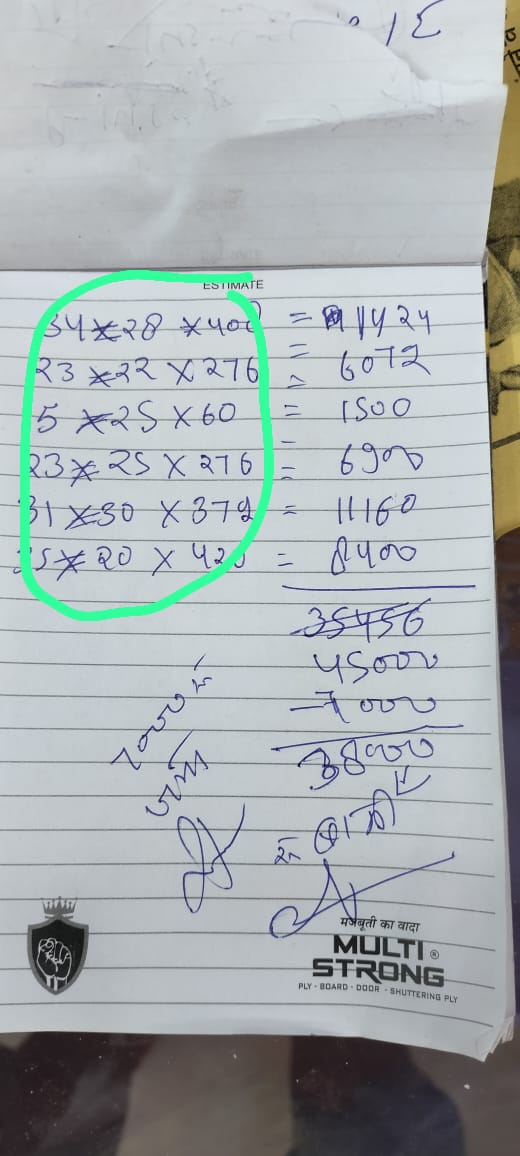 ESTIMATE
34 x 28 x 408 = 11424
23 x 22 x 276 = 6072
5 x 25 x 60 = 1500
23 x 25 x 276 = 6900
31 x 30 x 372 = 11160
35 x 20 x 420 = 8400
35456
45000
-7000
38000
7000
जमा
बाकी
मजबूती का वादा
MULTI
STRONG ®
PLY - BOARD - DOOR - SHUTTERING PLY